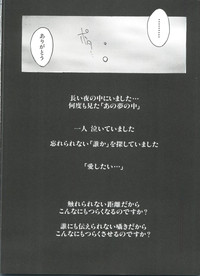 ………
ありがとう
長い夜の中にいました…
何度も見た「あの夢の中」
一人 泣いていました
忘れられない「誰か」を探していました
「愛したい…」
触れられない距離だから
こんなにもつらくなるのですか？
誰にも伝えられない囁きだから
こんなにもつらくさせるのですか？